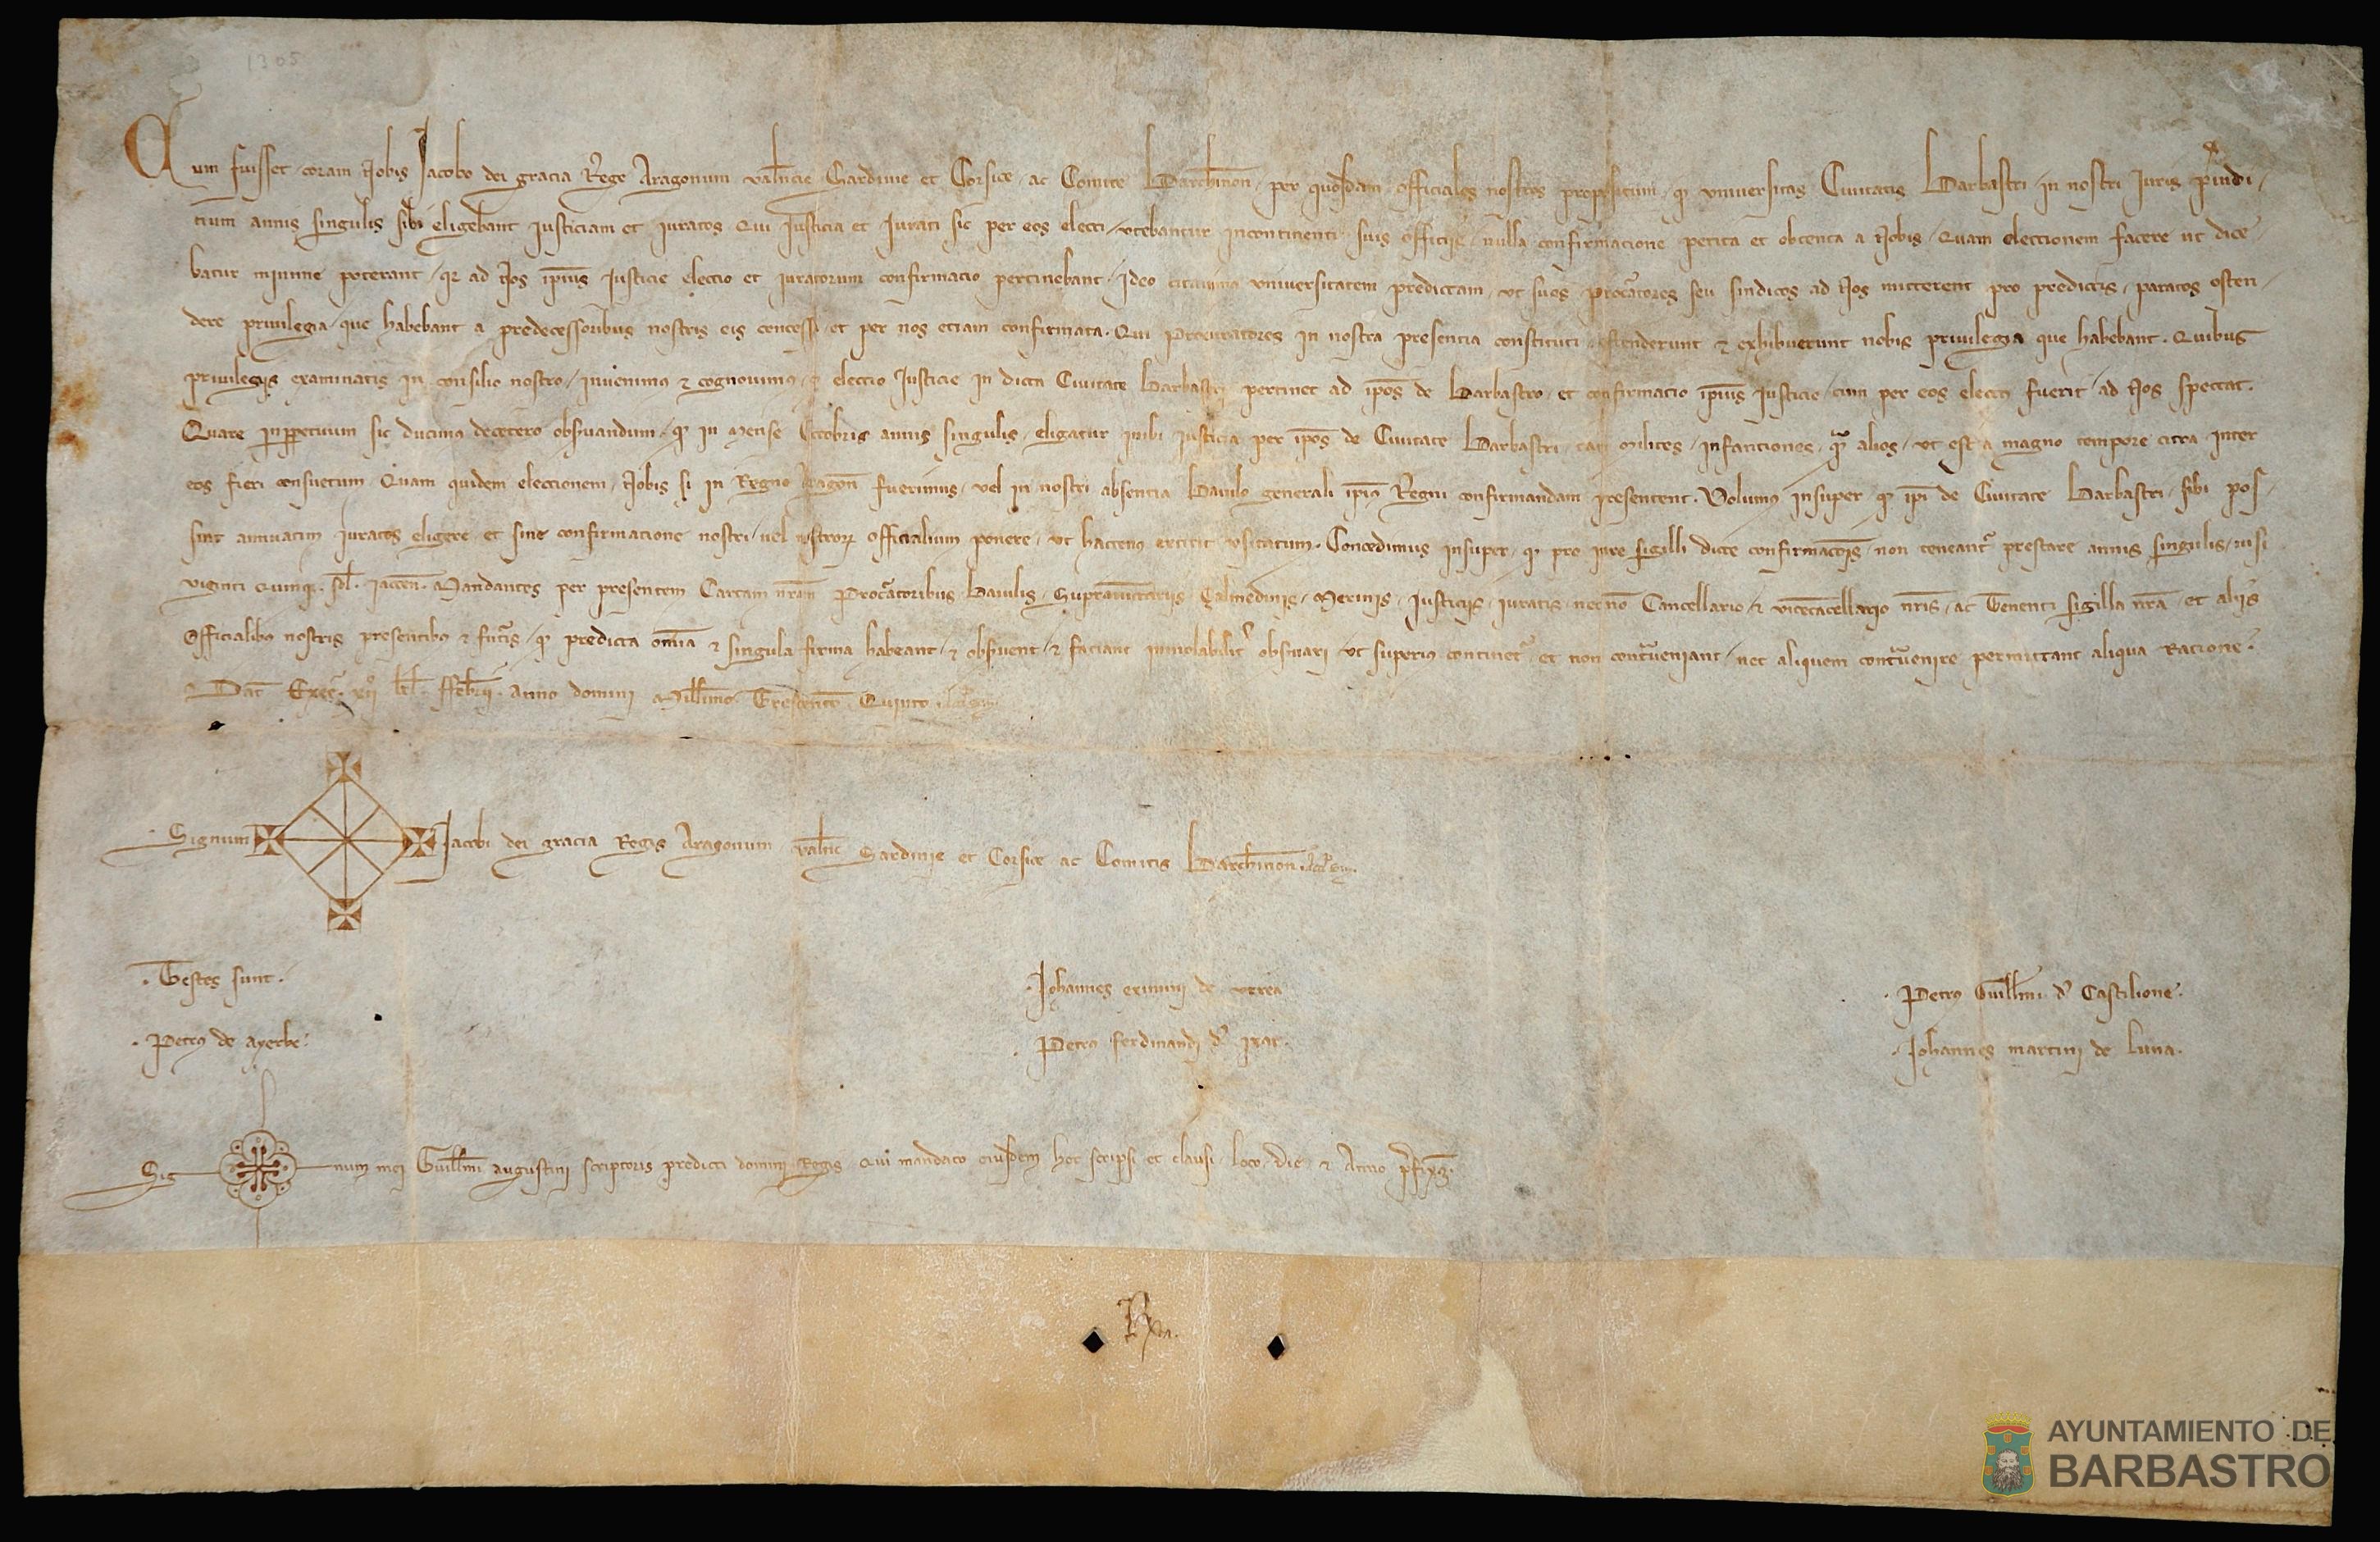 1305
Cum fuisset coram Nobis Jacobo dei gracia Rege Aragonum valncie Sardinie et Corsice ac Comite Barchinon per quosdam officiales nostros propositum qd universitas Civitatis Barbastri in nostri Iuris preiudi
cium annis singulis sibi eligebant Iusticiam et Iuratos Qui Iusticia et Iurati sic per eos electi utebantur incontinenti suis officiis nulla confirmacione petita et obtenta a Nobis Quam eleccionem facere ut dice
batur minime poterant qr ad Nos ipius Iusticie eleccio et iuratorum confirmacio pertinebant Ideo citavimus universitatem predictam ut suos procatores seu sindicos ad Nos mitterent pro predictis paratos osten
dere privilegia que habebant a predecessoribus nostris eis concessa et per nos etiam confirmata. Qui Procuratores in nostra presencia constituti ostenderunt & exhibuerunt nobis privilegia que habebant. Quibus
privilegiis examinatis in consilio nostro invenimus & cognovimus qd eleccio Iusticie in dicta Civitate Barbastri pertinet ad ipos de Barbastro et confirmacio ipius Iusticie cum per eos electi fuerit ad Nos spectat.
Quare inppetuum sic ducimus decetero obsvandum qd in mense Octobris annis singulis eligatur inibi iusticia per ipos de Civitate Barbastri tam milites infanciones qm alios ut est a magno tempore citra inter
eos fieri consuetum Quam quidem eleccionem Nobis si in Regno Aragon fuerimus vel in nostri absentia Baiulo generali ipius Regni confirmandam presentent. Volumus insuper qd ipi de Civitate Barbastri sibi pos
sint annuatim iuratos eligere et sine confirmacione nostri vel nostrorum officialium ponere ut hactenus extitit usitatum. Concedimus insuper qd pro iure sigilli dicte confirmacois non teneantr prestare annis singulis nisi
viginti quinq. sol. iaccen. Mandantes per presentem Cartam nram Procatoribus Baiulis Suprauintariis Calmedinis Merinis Iusticiis iuratis necno Cancellario & vicecacellario nris ac Tenenti sigilla nra et aliis
Officialibus nostris presentibus & futris qd predicta omia & singula firma habeant & obsvent & faciant inviolabilit observari ut superius continetr et non contraveniant nec aliquem contravenire permittant aliqua racione.
Dat Exee. xii kl. ffebrii. Anno domini Millimo Trescento Quinto
Signum Jacobi dei gracia Regis Aragonum valnc Sardinie et Corsice ac Comitis Barchinon
Testes sunt.
Johannes eximini de urrea
Petrus Guillmi de Castilione.
Petrus de ayerbe.
Petrus ferdinandi de ixar.
Johannes martini de luna.
Sig num mei Guillmi augustini scriptoris predicti domini Regis Qui mandato eiusdem hec scripsi et clausi loco die & Anno prefixis.
Rta.
AYUNTAMIENTO DE
BARBASTRO